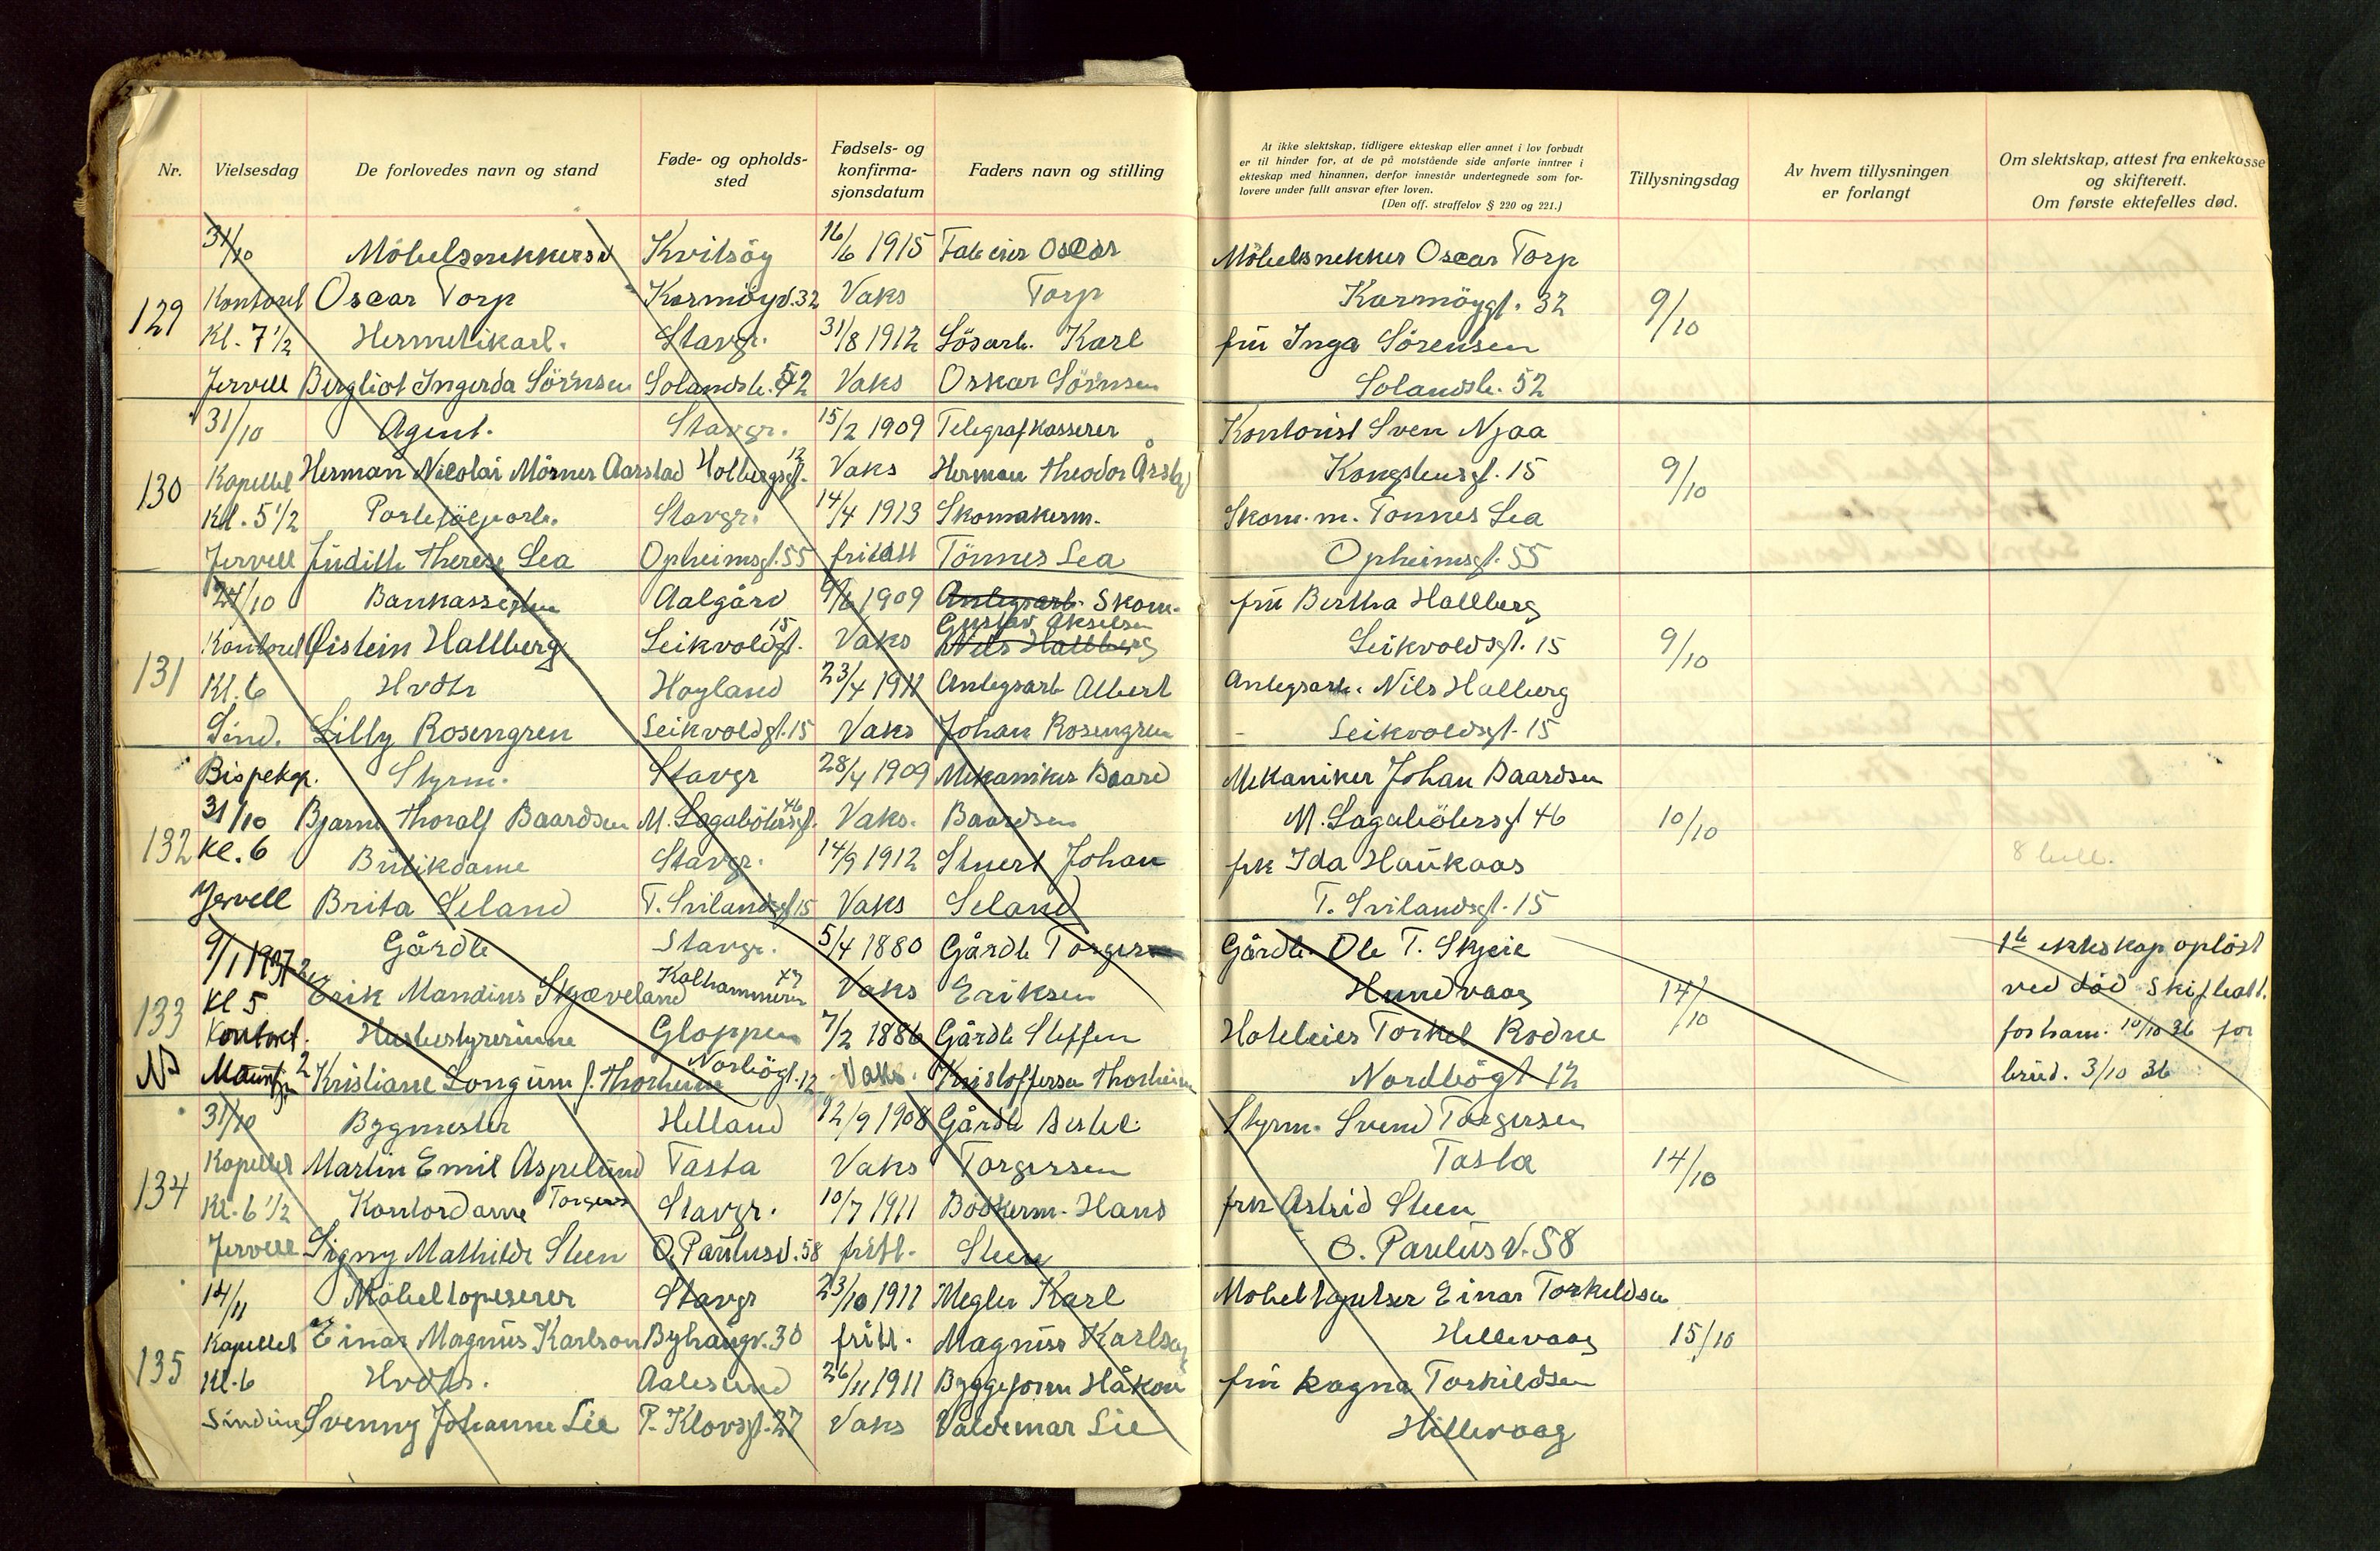 Nr.
Vielsesdag
De forlovedes navn og stand
Føde- og opholds-
sted
Fødsels- og
konfirma-
sjonsdatum
Faders navn og stilling
At ikke slektskap, tidligere ekteskap eller annet i lov forbudt
er til hinder for, at de på motstående side anførte inntrer i
ekteskap med hinannen, derfor innestår undertegnede som for-
lovere under fullt ansvar efter loven.
(Den off. straffelov § 220 og 221.)
Tillysningsdag
Av hvem tillysningen
er forlangt
Om slektskap, attest fra enkekasse
og skifterett.
Om første ektefelles død.
31/10 Möbelsnekkersv Kvitsöy 16/6 1915 Fab eier Oscar Möbelsnekker Oscar Torp
129 Kontoret Oscar Torp Karmöygt. 32 Vaks Torp Karmöygt. 32 9/10
Kl. 7 1/2 Hermetikarb. Stavgr. 31/8 1912 Lösarb. Karl frü Inga Sörensen
Jervell Bergliot Ingerda Sörnsen Solandsb. 52 Vaks Oskar Sörnsen Solandsb. 52
31/10 Agent. Stavgr. 15/2 1909 Telegrafkasserer Kontorist Sven Njaa
130 Kapellet Herman Nicolai Mörner Aarstad Holbergsgt. 12 Vaks Herman Theodor Årstad Kongsteinsgt. 15 9/10
Kl. 5 1/2 Stavgr. 14/4 1913 Skomakerm. Skom. m. Tönnes Lea
Jervell Jüdith Therese Lea Opheimsgt. 55 fritatt Tönnes Lea Opheimsgt. 55
24/10 Bankassistn Aalgård 9/6 1909 Anlegsarb. Skom. frü Bertha Hallberg
131 Kontoret Øistein Hallberg Leikvoldgt. 15 Vaks Gustav Akselsen Nils Hallberg Leikvoldsgt. 15 9/10
Kl. 6 Hvdtr Høyland 23/4 1911 Anlegsarb Albert Anlegsarb. Nils Halberg
Sind. Lilly Rosengren Leikvoldsgt. 15 Vaks Johan Rosengren Leikvoldsgt. 15
Bispekap. Styrm. Stavgr 28/4 1909 Mekaniker Baard Mekaniker Johan Baardsen
132 31/10 Bjarne Thoralf Baardsen M. Lagabötersgt. 46 Vaks. Baardsen M. Lagabötersgt 46 10/10
Kl. 6 Bütikdame Stavgr. 14/9 1912 Stuert Johan frk Ida Haükaas
8 bull.
Jervell Brita Seland T. Svilandsgt 15 Vaks Seland T. Svilandsgt. 15
9/1 1937 Gårdb Stavgr. 5/4 1880 Gårdb Torger Gårdb. Ole T. Skjeie 1ste ekteskap oplöst
133 Kl 5 Erik Mandius Skjæveland Kalhammeren 47 Vaks Eriksen Hundvaag 14/10 ved död Skifteatt.
Kontoret. Hüsbestyrerinne Gloppen 7/2 1886 Gårdb Steffen Hoteleier Torkel Rodne for ham. 10/10 36 for
Kristiane Longüm f. Thorheim Norbögt. 12 Vaks. Kristoffersen Thorheim Nordbögt 12 brüd. 3/10 36
31/10 Bygmester Helland 12/9 1908 Gårdb Bertel. Styrm. Svend Torgersen
134 Kapellet Martin Emil Aspelünd Torgers Tasta Vaks Torgersen Tasta 14/10
Kl. 6 1/2 Kontordame Stavgr. 10/7 1911 Bödkerm. Hans frk Astrid Steen
Jervell Signy Mathilde Steen O. Paülusv. 58 fritt. Steen O. Paulüs V. 58
14/11 Möbeltapeserer Stavgr 23/10 1911 Megler Karl Möbeltapetser Einar Torkeldsen
135 Kapellet Einar Magnüs Karlson Byhaugv. 30 fritt. Magnüs Karlsen Hillevaag 15/10
Kl. 6 Hvdtr. Aalesund 26/11 1911 Byggeform Håkon frü Ragna Torkildsen
Sinding Svenny Johanne Lie P. Klovsgt. 27 Vaks Valdemar Lie Hillevaag